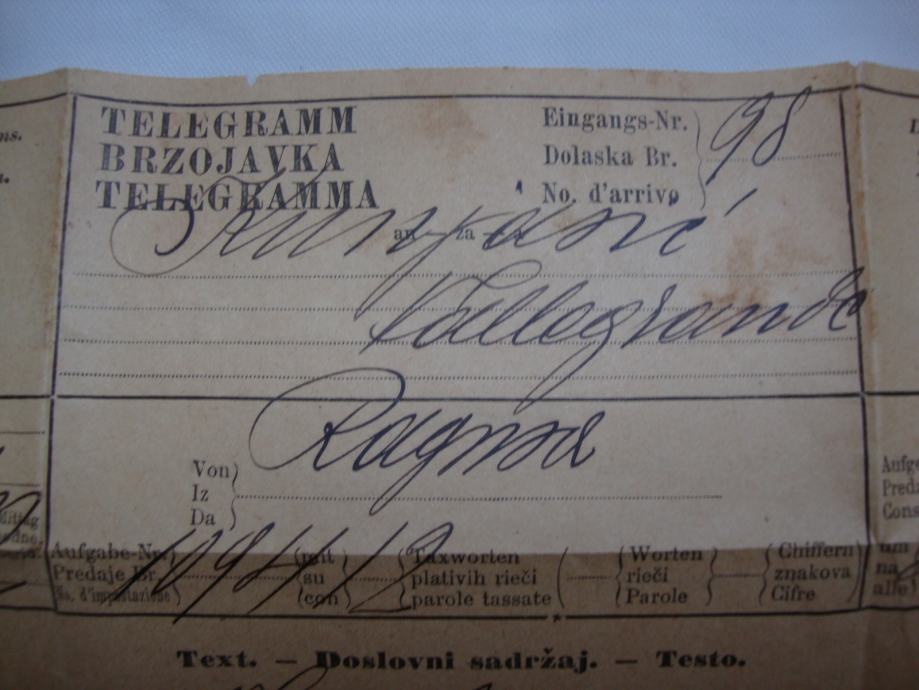 ns.
TELEGRAMM
BRZOJAVKA
TELEGRAMMA
Eingangs-Nr.
Dolaska Br.
No. d'arrivo
98
an za a
Vallegrande
Ragusa
Von
Iz
Da
Aufgabe-Nr.
Predaje Br.
No. d'impostazione
1094
mit
su
con
12
Taxworten
plativih rieči
parole tassate
Worten
rieči
Parole
Chiffern
znakova
Cifre
um
na
alle
Text. — Doslovni sadržaj. — Testo.